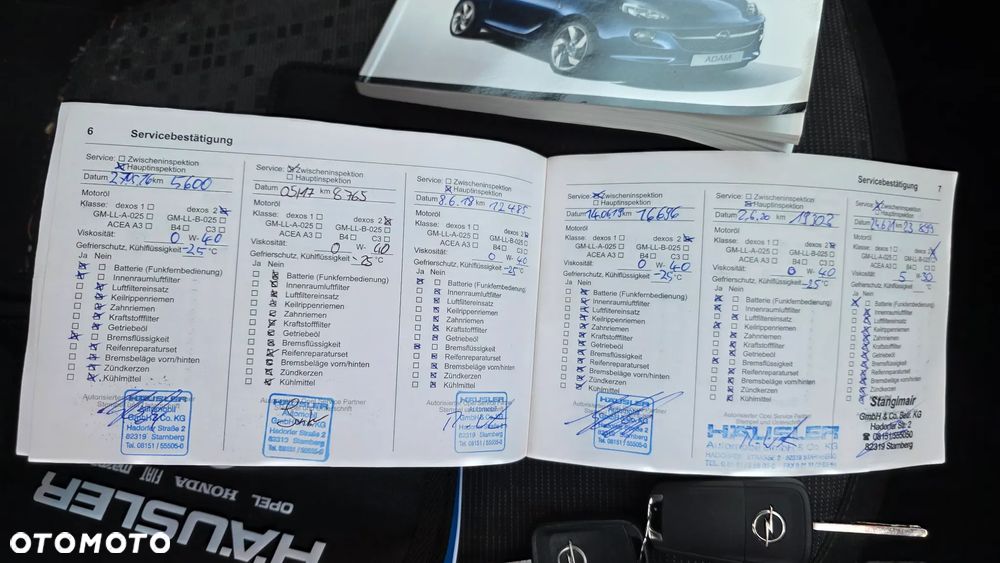 ADAM
6 Servicebestätigung
Service: Zwischeninspektion
Hauptinspektion
Datum km 5600
Motoröl
Klasse: dexos 1 dexos 2
GM-LL-A-025 GM-LL-B-025
ACEA A3 B4 C3
Viskosität: 0 W- 40
Gefrierschutz, Kühlflüssigkeit -25 °C
Ja Nein
Batterie (Funkfernbedienung)
Innenraumluftfilter
Luftfiltereinsatz
Keilrippenriemen
Zahnriemen
Kraftstofffilter
Getriebeöl
Bremsflüssigkeit
Reifenreparaturset
Bremsbeläge vorn/hinten
Zündkerzen
Kühlmittel
HÄUSLER
Automobil
GmbH & Co. KG
Hadorfer Straße 2
82319 Starnberg
Tel. 08151 / 55505-0
Service: Zwischeninspektion
Hauptinspektion
Datum 05/17 km 8765
Motoröl
Klasse: dexos 1 dexos 2
GM-LL-A-025 GM-LL-B-025
ACEA A3 B4 C3
Viskosität: 0 W- 40
Gefrierschutz, Kühlflüssigkeit -25 °C
Ja Nein
Batterie (Funkfernbedienung)
Innenraumluftfilter
Luftfiltereinsatz
Keilrippenriemen
Zahnriemen
Kraftstofffilter
Getriebeöl
Bremsflüssigkeit
Reifenreparaturset
Bremsbeläge vorn/hinten
Zündkerzen
Kühlmittel
HÄUSLER
Automobil
GmbH & Co. KG
Hadorfer Straße 2
82319 Starnberg
Tel. 08151 / 55505-0
Service: Zwischeninspektion
Hauptinspektion
Datum 8.6.18 km 12485
Motoröl
Klasse: dexos 1 dexos 2
GM-LL-A-025 GM-LL-B-025
ACEA A3 B4 C3
Viskosität: 0 W- 40
Gefrierschutz, Kühlflüssigkeit -25 °C
Ja Nein
Batterie (Funkfernbedienung)
Innenraumluftfilter
Luftfiltereinsatz
Keilrippenriemen
Zahnriemen
Kraftstofffilter
Getriebeöl
Bremsflüssigkeit
Reifenreparaturset
Bremsbeläge vorn/hinten
Zündkerzen
Kühlmittel
HÄUSLER
Automobil
GmbH & Co. KG
Hadorfer Straße 2
82319 Starnberg
Tel. 08151 / 55505-0
Servicebestätigung 7
Service: Zwischeninspektion
Hauptinspektion
Datum 14.06.19 km 16696
Motoröl
Klasse: dexos 1 dexos 2
GM-LL-A-025 GM-LL-B-025
ACEA A3 B4 C3
Viskosität: 0 W- 40
Gefrierschutz, Kühlflüssigkeit -25 °C
Ja Nein
Batterie (Funkfernbedienung)
Innenraumluftfilter
Luftfiltereinsatz
Keilrippenriemen
Zahnriemen
Kraftstofffilter
Getriebeöl
Bremsflüssigkeit
Reifenreparaturset
Bremsbeläge vorn/hinten
Zündkerzen
Kühlmittel
HÄUSLER
Automobil
GmbH & Co. KG
Hadorfer Straße 2
82319 Starnberg
Tel. 08151 / 55505-0
Service: Zwischeninspektion
Hauptinspektion
Datum 2.6.20 km 19802
Motoröl
Klasse: dexos 1 dexos 2
GM-LL-A-025 GM-LL-B-025
ACEA A3 B4 C3
Viskosität: 0 W- 40
Gefrierschutz, Kühlflüssigkeit -25 °C
Ja Nein
Batterie (Funkfernbedienung)
Innenraumluftfilter
Luftfiltereinsatz
Keilrippenriemen
Zahnriemen
Kraftstofffilter
Getriebeöl
Bremsflüssigkeit
Reifenreparaturset
Bremsbeläge vorn/hinten
Zündkerzen
Kühlmittel
Autorisierter Opel Service Partner
Stempel und Unterschrift
HÄUSLER
Service: Zwischeninspektion
Hauptinspektion
Datum km 23 899
Motoröl
Klasse: dexos 1 dexos 2
GM-LL-A-025 GM-LL-B-025
ACEA A3 B4 C3
Viskosität: 5 W- 30
Gefrierschutz, Kühlflüssigkeit °C
Ja Nein
Batterie (Funkfernbedienung)
Innenraumluftfilter
Luftfiltereinsatz
Keilrippenriemen
Zahnriemen
Kraftstofffilter
Getriebeöl
Bremsflüssigkeit
Reifenreparaturset
Bremsbeläge vorn/hinten
Zündkerzen
Kühlmittel
Stanglmair
GmbH & Co. Bet. KG
Hadorfer Str. 2
08151/555050
82319 Starnberg
OPEL HONDA FIAT
HÄUSLER
OTOMOTO